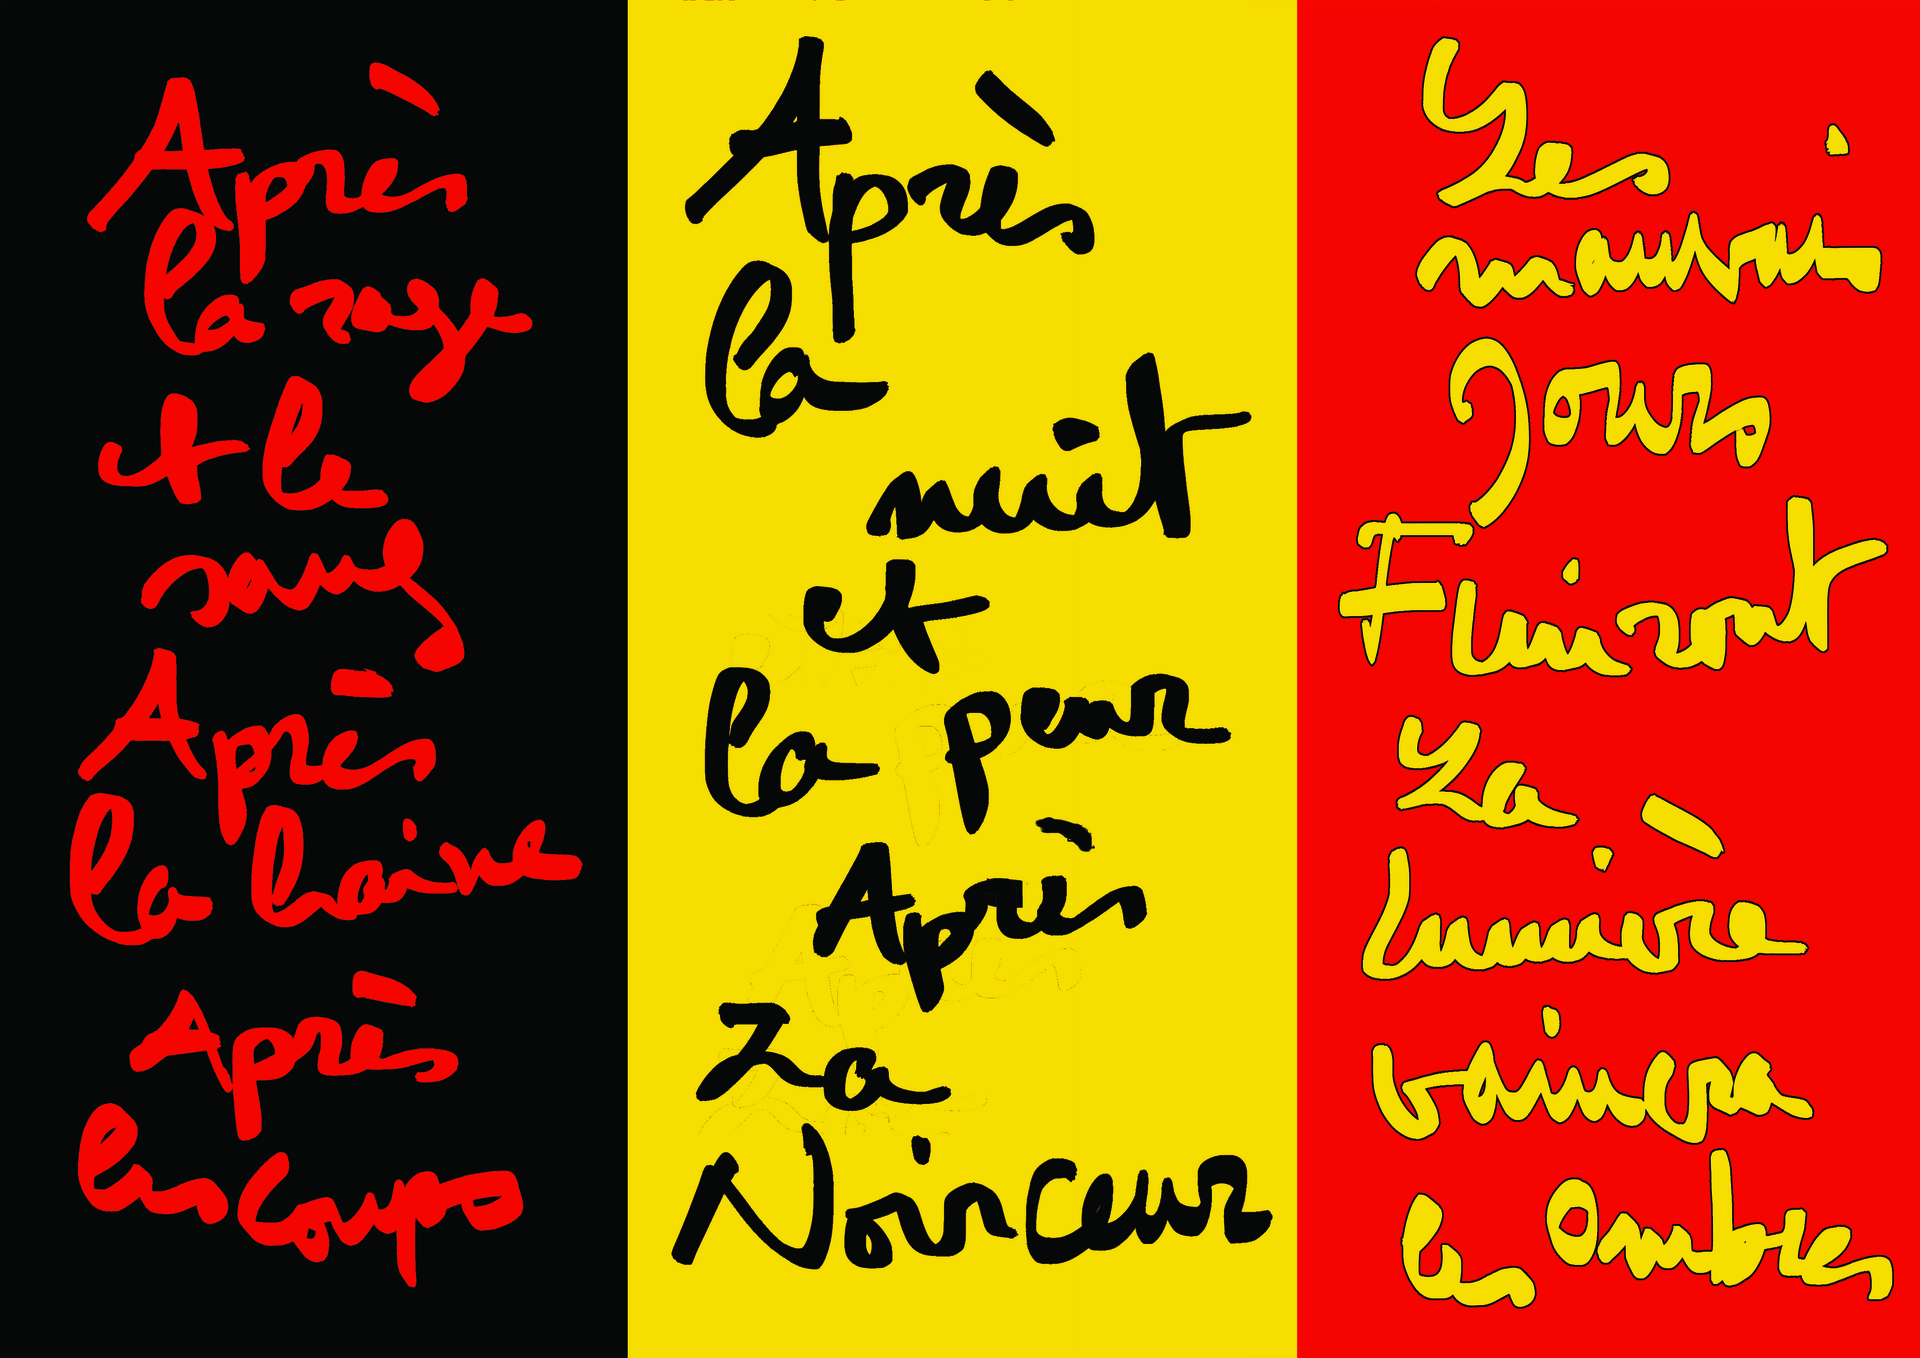 Après
la rage
et le
sang
Après
la haine
Après
les coups
Après
la
nuit
et
la peur
Après
La
Noirceur
Les
mauvais
Jours
Finiront
La
lumière
vaincra
les Ombres